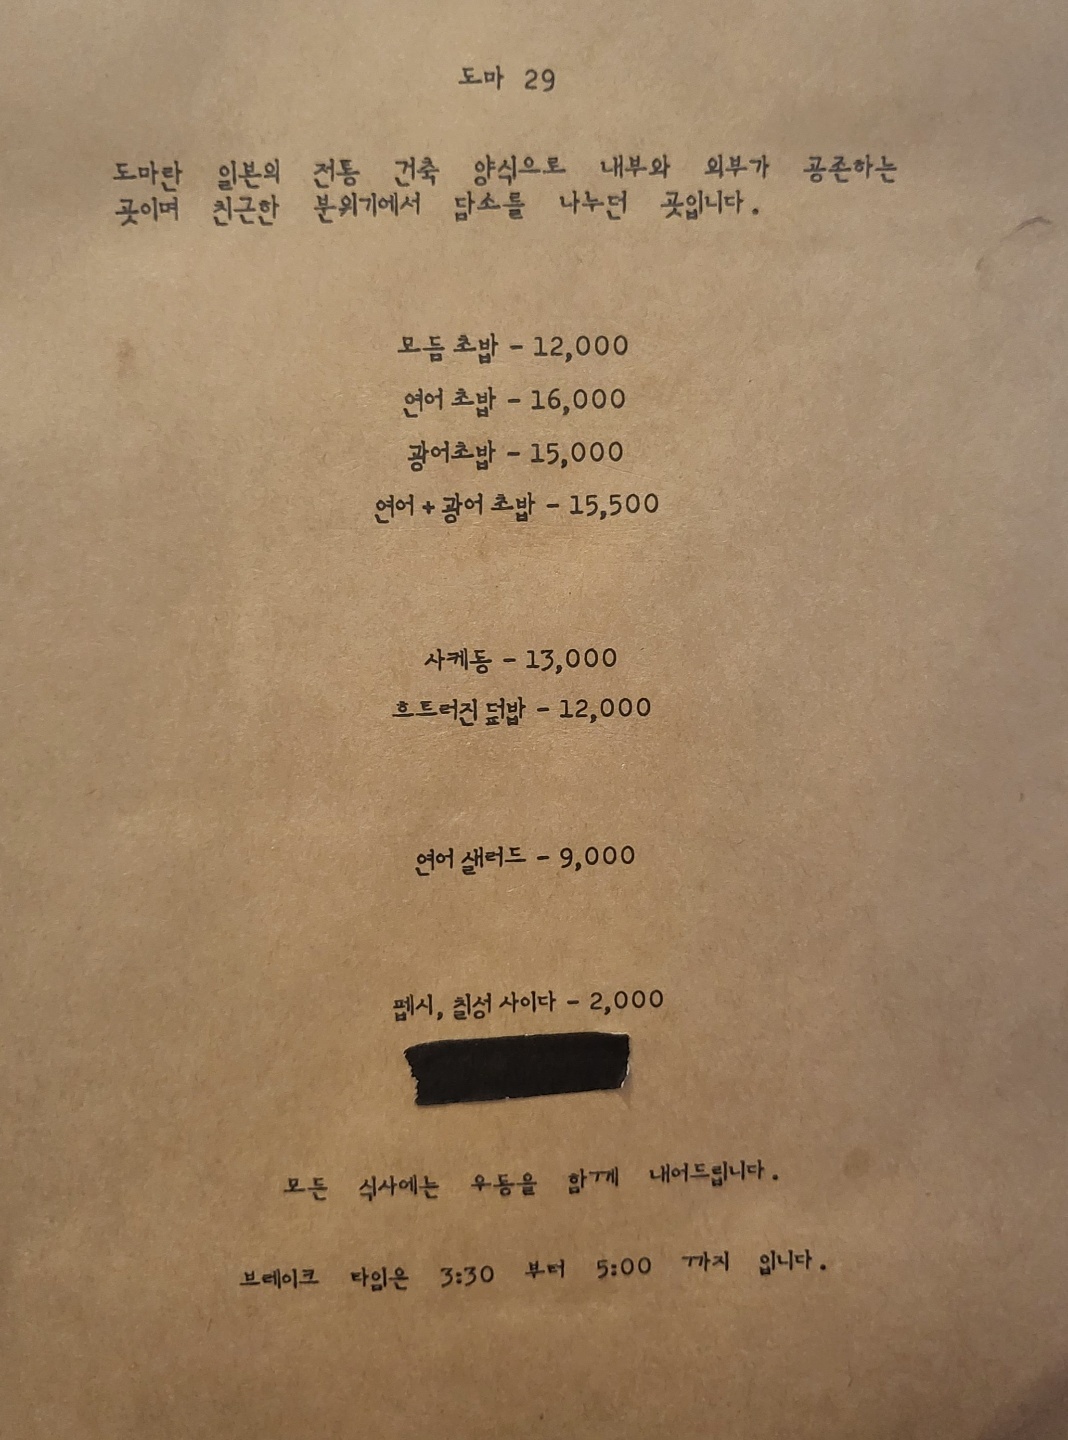 도마 29
도마란 일본의 전통 건축 양식으로 내부와 외부가 공존하는
곳이며 친근한 분위기에서 담소를 나누던 곳입니다.
모듬 초밥 - 12,000
연어 초밥 - 16,000
광어초밥 - 15,000
연어 + 광어 초밥 - 15,500
사케동 - 13,000
흐트러진 덮밥 - 12,000
연어 샐러드 - 9,000
펩시, 칠성 사이다 - 2,000
모든 식사에는 우동을 함께 내어드립니다.
브레이크 타임은 3:30 부터 5:00 까지 입니다.